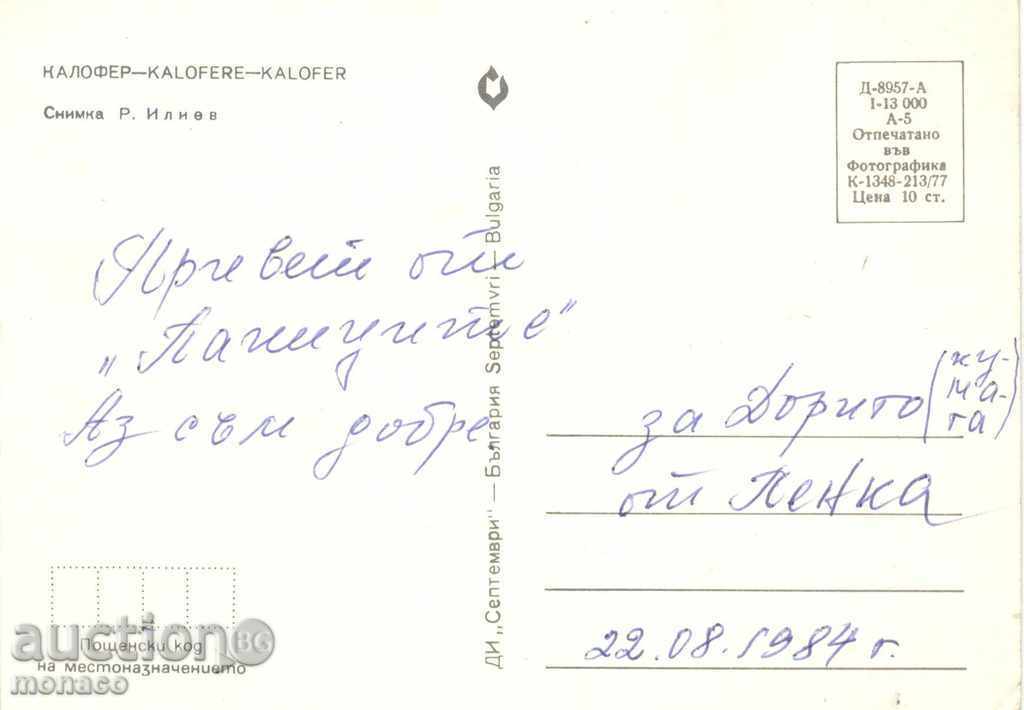 КАЛОФЕР—KALOFERE—KALOFER
Снимка Р. Илиев
Д-8957-А
I-13 000
А-5
Отпечатано
във
Фотографика
К-1348-213/77
Цена 10 ст.
ДИ „Септември" — България Septemvri — Bulgaria
Привет от
„Паниците"
Аз съм добре
за Дорито (кумата)
от Пенка
22.08.1984 г.
Пощенски код
на местоназначението
auction BG
monaco